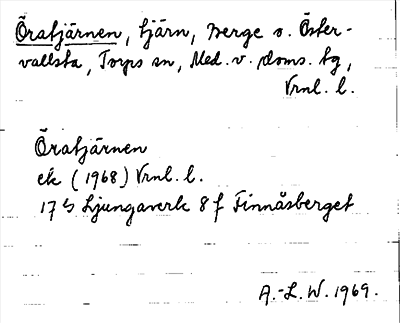 Öratjärnen, tjärn, Berge o. Öster-
vallsta, Torps sn, Med. v. doms. tg,
Vrnl. l.
Öratjärnen
ek (1968) Vrnl. l.
17 G Ljungaverk 8 f Finnåsberget
A.-L. W. 1969.